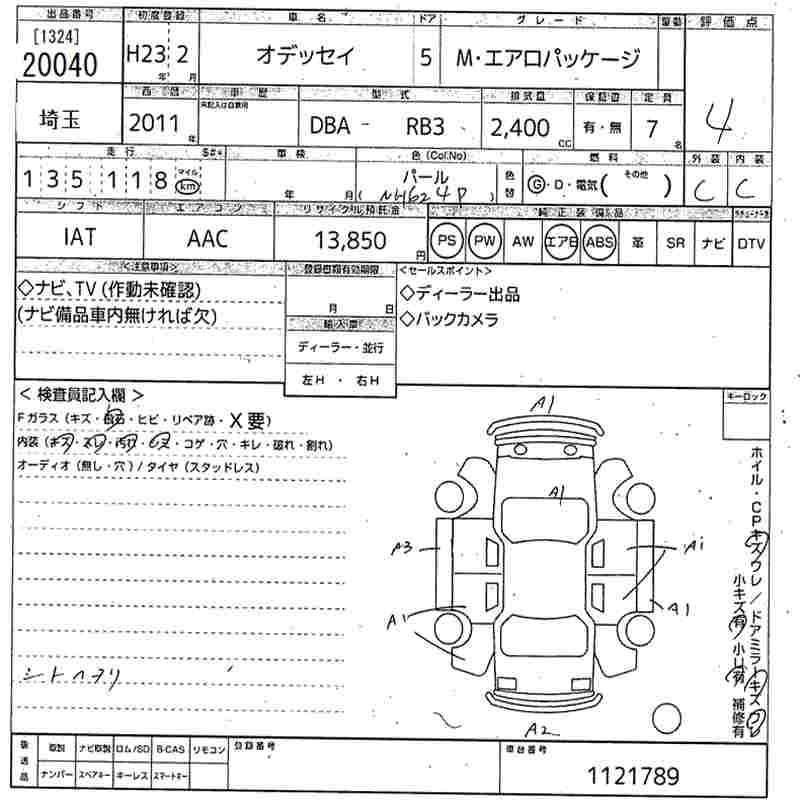 出品番号 初度登録 車名 ドア グレード 駆動 評価点
[1324]
20040 H23 2 オデッセイ 5 M・エアロパッケージ
年 月
西暦 車歴 型式 排気量 保証書 定員
未記入は自家用
埼玉 2011 年 DBA - RB3 2,400 CC 有・無 7 名 4
走行 車検 色(Col.No) 燃料 外装 内装
135,118 マイル km 年 月 パール (NH624P) 色替 G・D・電気( その他 ) C C
シフト エアコン リサイクル預託金 純正装備品
IAT AAC 13,850 円 PS PW AW エアB ABS 革 SR ナビ DTV
<注意事項> 登録書類有効期限 <セールスポイント>
◇ナビ、TV(作動未確認) ◇ディーラー出品
(ナビ備品車内無ければ欠) 月 日 ◇バックカメラ
輸入車
ディーラー・並行
左H ・ 右H
<検査員記入欄> キーロック
Fガラス(キズ・飛石・ヒビ・リペア跡・X要)
内装(キズ・スレ・汚れ・シミ・コゲ・穴・キレ・破れ・割れ)
オーディオ(無し・穴)/タイヤ(スタッドレス)
A1
A1
A3 A1
A1 A1
A2
シートヘタリ
ホイル・CPキズワレ/ドアミラーキズ
小キズ有 小U有 補修有
後送品 取説 ナビ取説 ロム/SD B-CAS リモコン 登録番号 車台番号
ナンバー スペアキー キーレス スマートキー 1121789